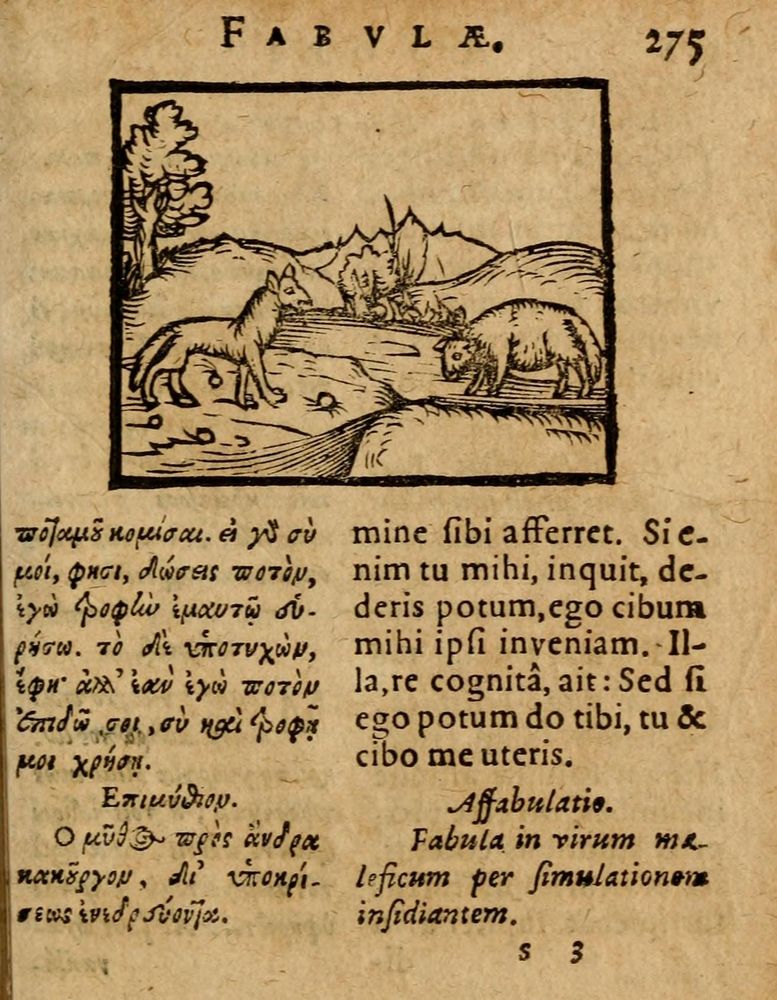 FABVLÆ. 275
ποταμοῦ κομίσαι. εἰ γὰρ σὺ
μοί, φησι, δώσεις ποτὸν,
ἐγὼ τροφὴν ἐμαυτῷ εὑ-
ρήσω. τὸ δὲ ὑποτυχὼν,
ἔφη· ἀλλ' ἐὰν ἐγὼ ποτὸν
ἐπιδῶ σοι, σὺ καὶ τροφῇ
μοι χρήσῃ.
Επιμύθιον.
Ο μῦθος πρὸς ἄνδρα
κακοῦργον, δι' ὑποκρί-
σεως ἐνεδρεύοντα.
mine ſibi afferret. Si e-
nim tu mihi, inquit, de-
deris potum, ego cibum
mihi ipſi inveniam. Il-
la, re cognitâ, ait: Sed ſi
ego potum do tibi, tu &
cibo me uteris.
Affabulatio.
Fabula in virum ma-
leficum per ſimulationem
inſidiantem.
s 3